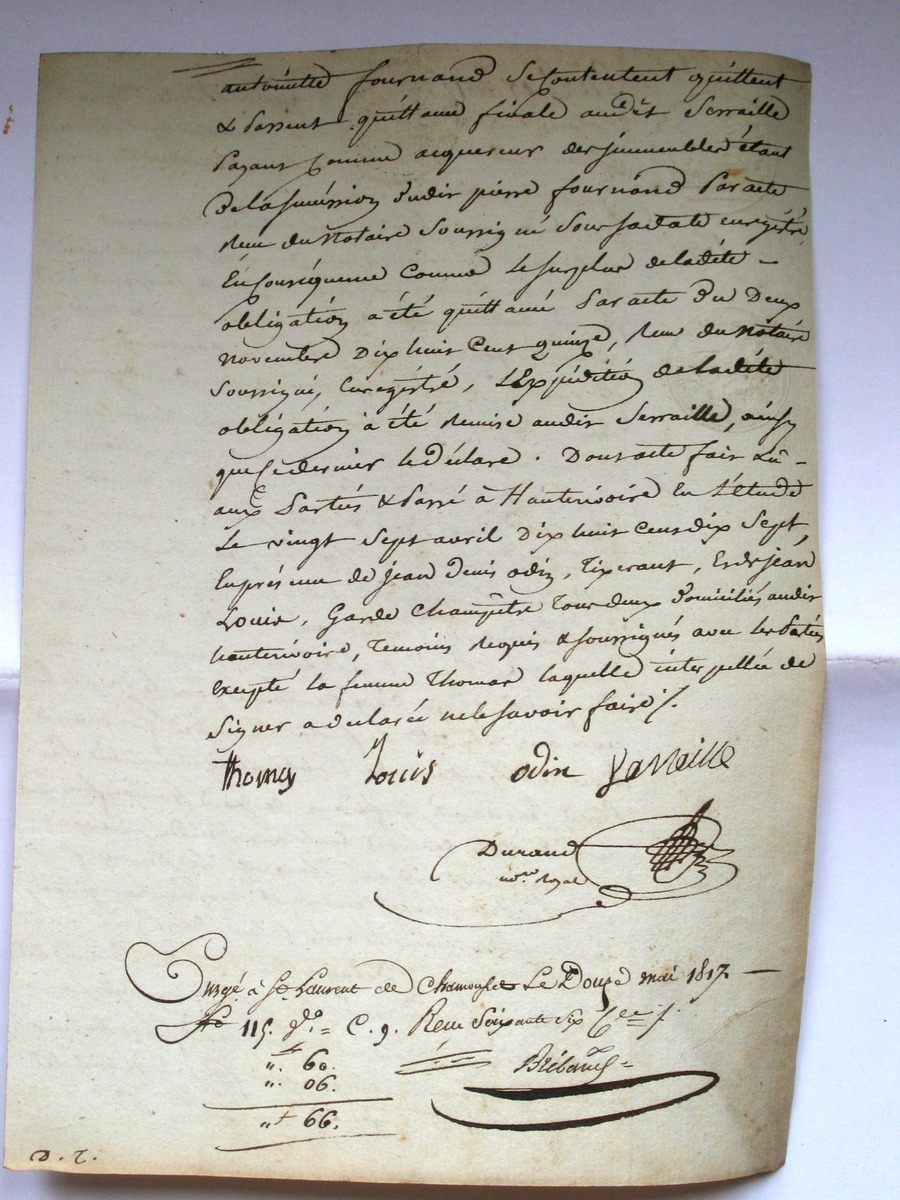 antoinette fournand se contentent quittent
& passent quittance finale audit Serraille
payant comme acquereur des immeubles étant
de la succession dudit pierre fournand par acte
reçu du Notaire Soussigné Sous sa date enregistré
En conséquence comme le surplus de la dite —
obligation a été quittancé par acte du Deux
novembre Dix huit Cent quinze, reçu du notaire
soussigné, Enregistré, L'Expédition de la dite
obligation a été remise audit Serraille, ainsy
que ce dernier le déclare. Dont acte fait Lû -
aux Parties & Passé à Hauterivoire En L'étude
Le vingt Sept avril Dix huit Cent dix Sept
En présence de jean Denis odin, Tixerant, Et de jean
Louis, Garde Champêtre Tous deux Domiciliés audit
hauterivoire, Temoins requis & soussignés avec les Parties
excepté la femme Thomas laquelle interpellée de
Signer a declarée ne le savoir faire ./.
thomas Louis odin Sarraille
Durand
no.re Royal
Enrgé à St. Laurent de Chamousset Le Douze mai 1817 —
fo 115. Vo. = C. 9. Recu Soixante Six Ces ./.
". 60.
". 06.
"f 66.
D. T.